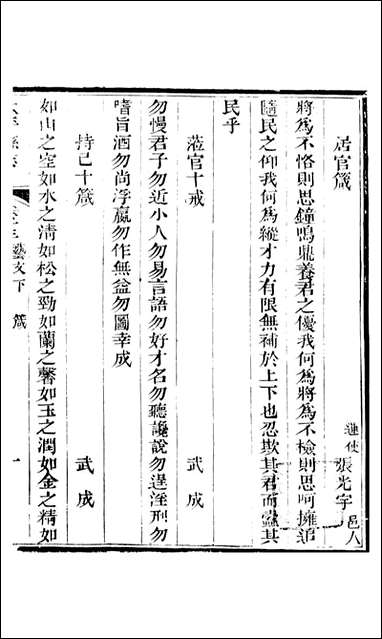 居官箴　運使張光宇邑人
將為不恪則思鐘鳴鼎養君之優我何為將為不檢則思呵擁追
隨民之仰我何為縱才力有限無補於上下也忍欺其君而蠹其
民乎
蒞官十戒　武成
勿慢君子勿近小人勿易言語勿好才名勿聽讒說勿逞淫刑勿
嗜旨酒勿尚浮嬴勿作無益勿圖幸成
持己十箴　武成
如山之空如水之清如松之勁如蘭之馨如玉之潤如金之精如
卷之三藝文下　箴　一